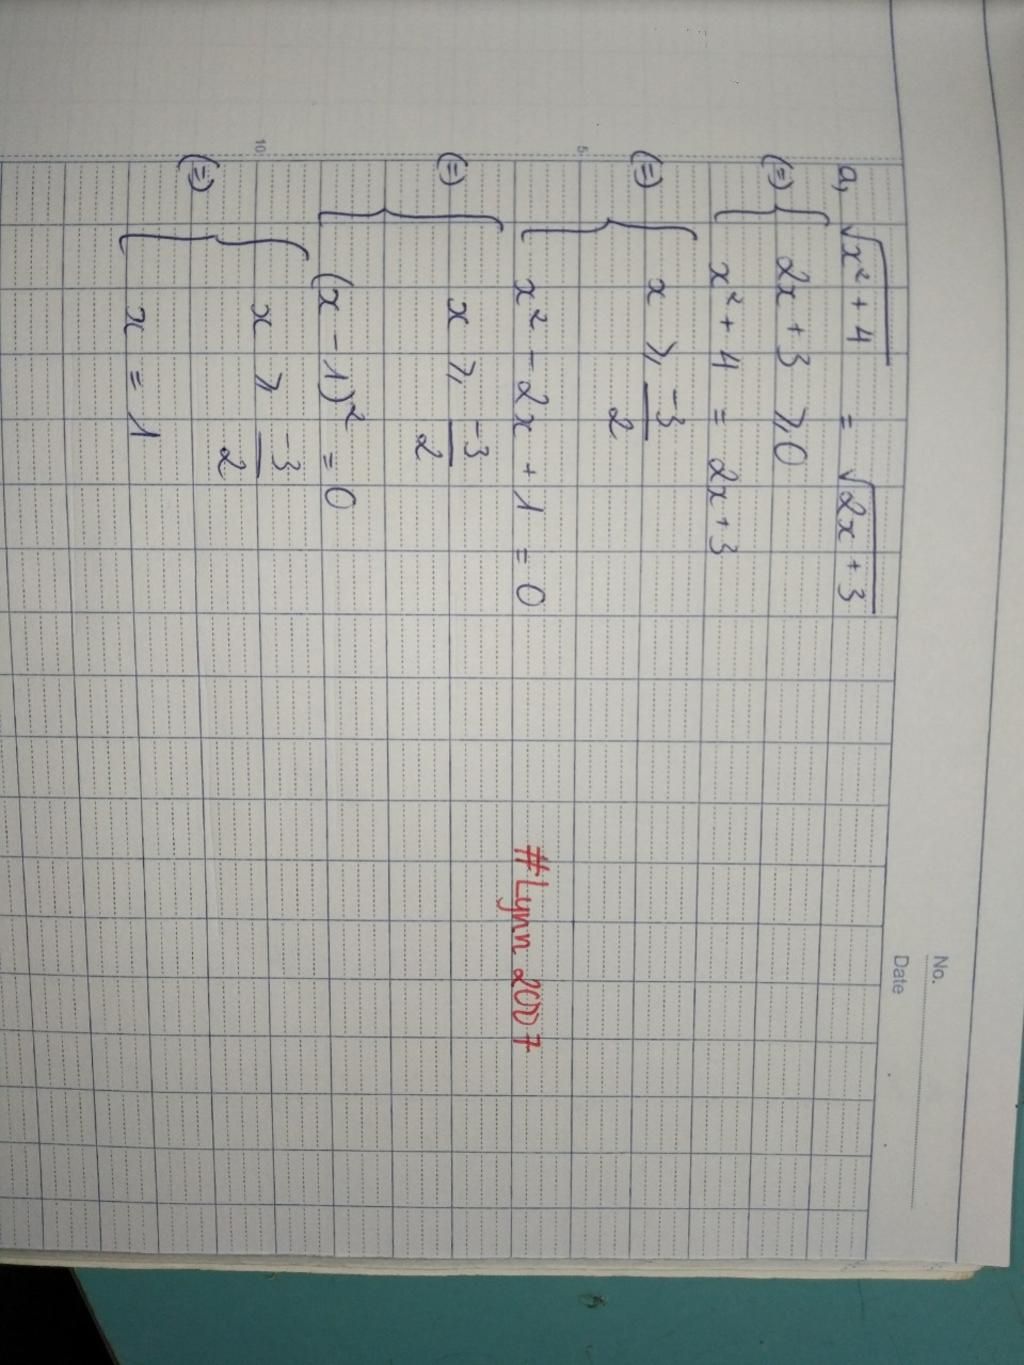 No.
Date
a, √(x² + 4) = √(2x + 3)
(=) { 2x + 3 ⩾ 0
x² + 4 = 2x + 3
(=) { x ⩾ -3/2
5
x² - 2x + 1 = 0
(=) { x ⩾ -3/2
(x - 1)² = 0
(=) { x ⩾ -3/2
10
x = 1
#Lynn 2007